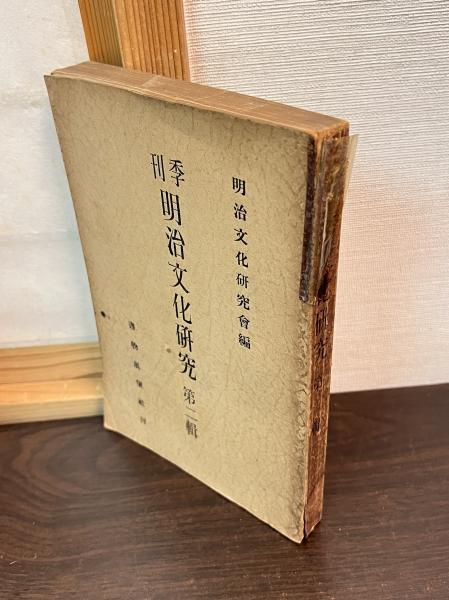 明治文化研究會編
季刊 明治文化研究 第二輯
書物展望社刊
研究 第二輯